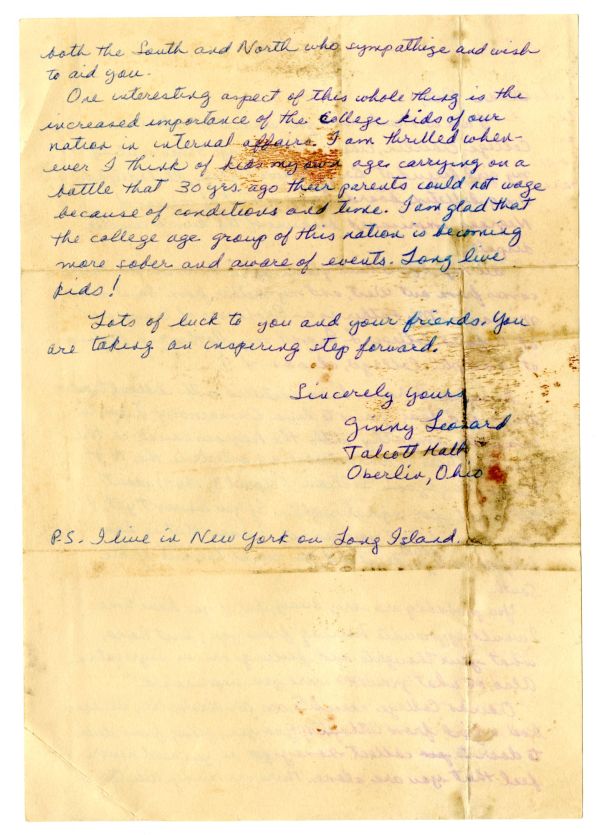 both the South and North who sympathize and wish
to aid you.
One interesting aspect of this whole thing is the
increased importance of the college kids of our
nation in internal affairs. I am thrilled when-
ever I think of kids my own age carrying on a
battle that 30 yrs. ago their parents could not wage
because of conditions and time. I am glad that
the college age group of this nation is becoming
more sober and aware of events. Long live
kids!
Lots of luck to you and your friends. You
are taking an inspiring step forward.
Sincerely yours
Ginny Leonard
Talcott Hall
Oberlin, Ohio
P.S. I live in New York on Long Island.